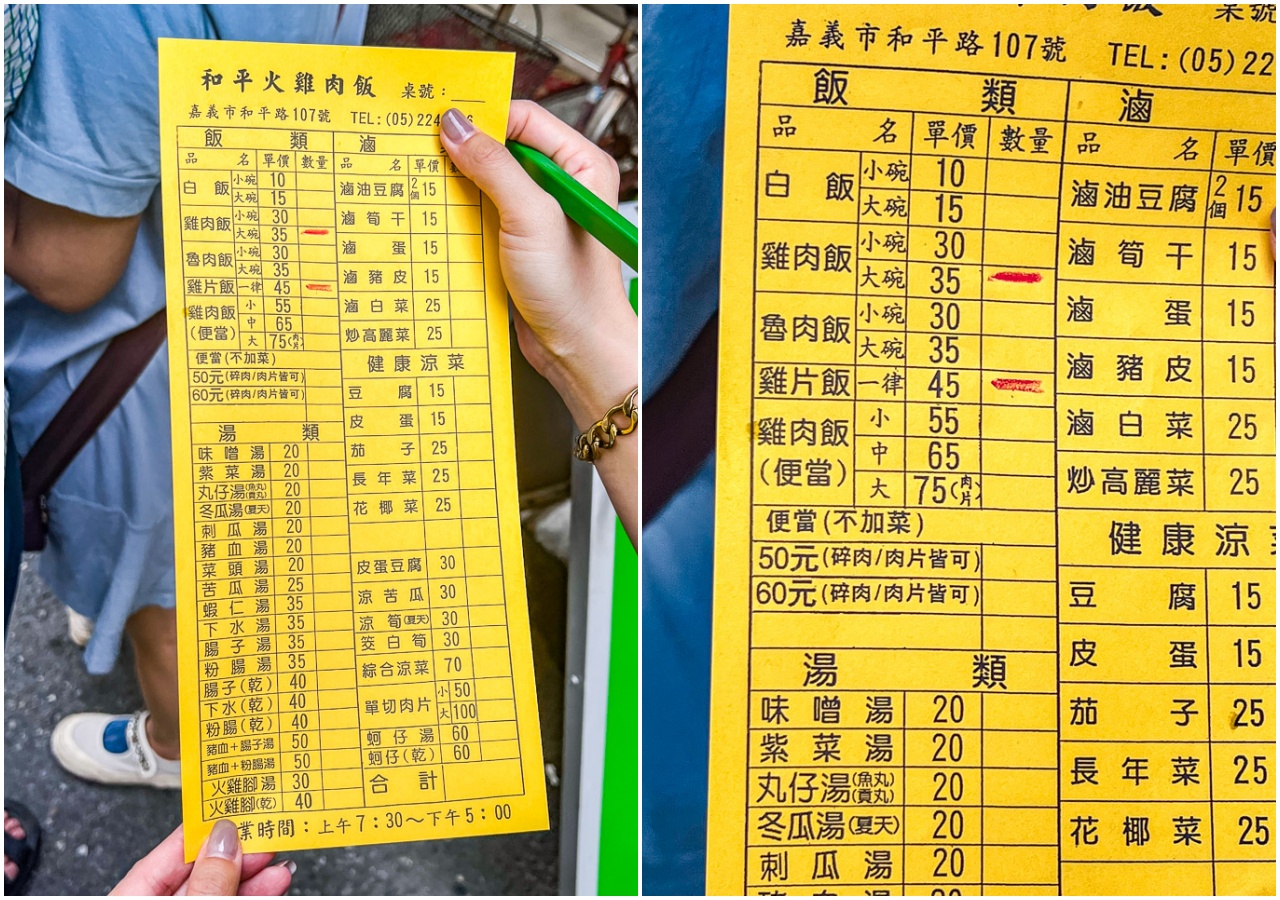 和平火雞肉飯 桌號：
嘉義市和平路107號 TEL:(05)224
飯類 滷
品名 單價 數量 品名 單價
白飯 小碗 10 滷油豆腐 2個 15
大碗 15
雞肉飯 小碗 30 滷筍干 15
大碗 35 滷蛋 15
魯肉飯 小碗 30
大碗 35 滷豬皮 15
雞片飯 一律 45
雞肉飯(便當) 小 55 滷白菜 25
中 65
大 75(肉片) 炒高麗菜 25
便當(不加菜) 健康涼菜
50元(碎肉/肉片皆可) 豆腐 15
60元(碎肉/肉片皆可)
皮蛋 15
湯類
味噌湯 20 茄子 25
紫菜湯 20 長年菜 25
丸仔湯(魚丸)(貢丸) 20
冬瓜湯(夏天) 20 花椰菜 25
刺瓜湯 20
豬血湯 20
菜頭湯 20 皮蛋豆腐 30
苦瓜湯 25 涼苦瓜 30
蝦仁湯 35
下水湯 35 涼筍(夏天) 30
腸子湯 35 筊白筍 30
粉腸湯 35 綜合涼菜 70
腸子(乾) 40
下水(乾) 40 單切肉片 小 50
粉腸(乾) 40 大 100
豬血+腸子湯 50 蚵仔湯 60
豬血+粉腸湯 50 蚵仔(乾) 60
火雞腳湯 30 合計
火雞腳(乾) 40
業時間：上午7：30～下午5：00
桌號
嘉義市和平路107號 TEL:(05)22
飯類 滷
品名 單價 數量 品名 單價
白飯 小碗 10 滷油豆腐 2個 15
大碗 15
雞肉飯 小碗 30 滷筍干 15
大碗 35
魯肉飯 小碗 30 滷蛋 15
大碗 35 滷豬皮 15
雞片飯 一律 45
雞肉飯(便當) 小 55 滷白菜 25
中 65
大 75(肉片 炒高麗菜 25
便當(不加菜) 健康涼
50元(碎肉/肉片皆可)
60元(碎肉/肉片皆可) 豆腐 15
湯類 皮蛋 15
味噌湯 20 茄子 25
紫菜湯 20
丸仔湯(魚丸)(貢丸) 20 長年菜 25
冬瓜湯(夏天) 20 花椰菜 25
刺瓜湯 20